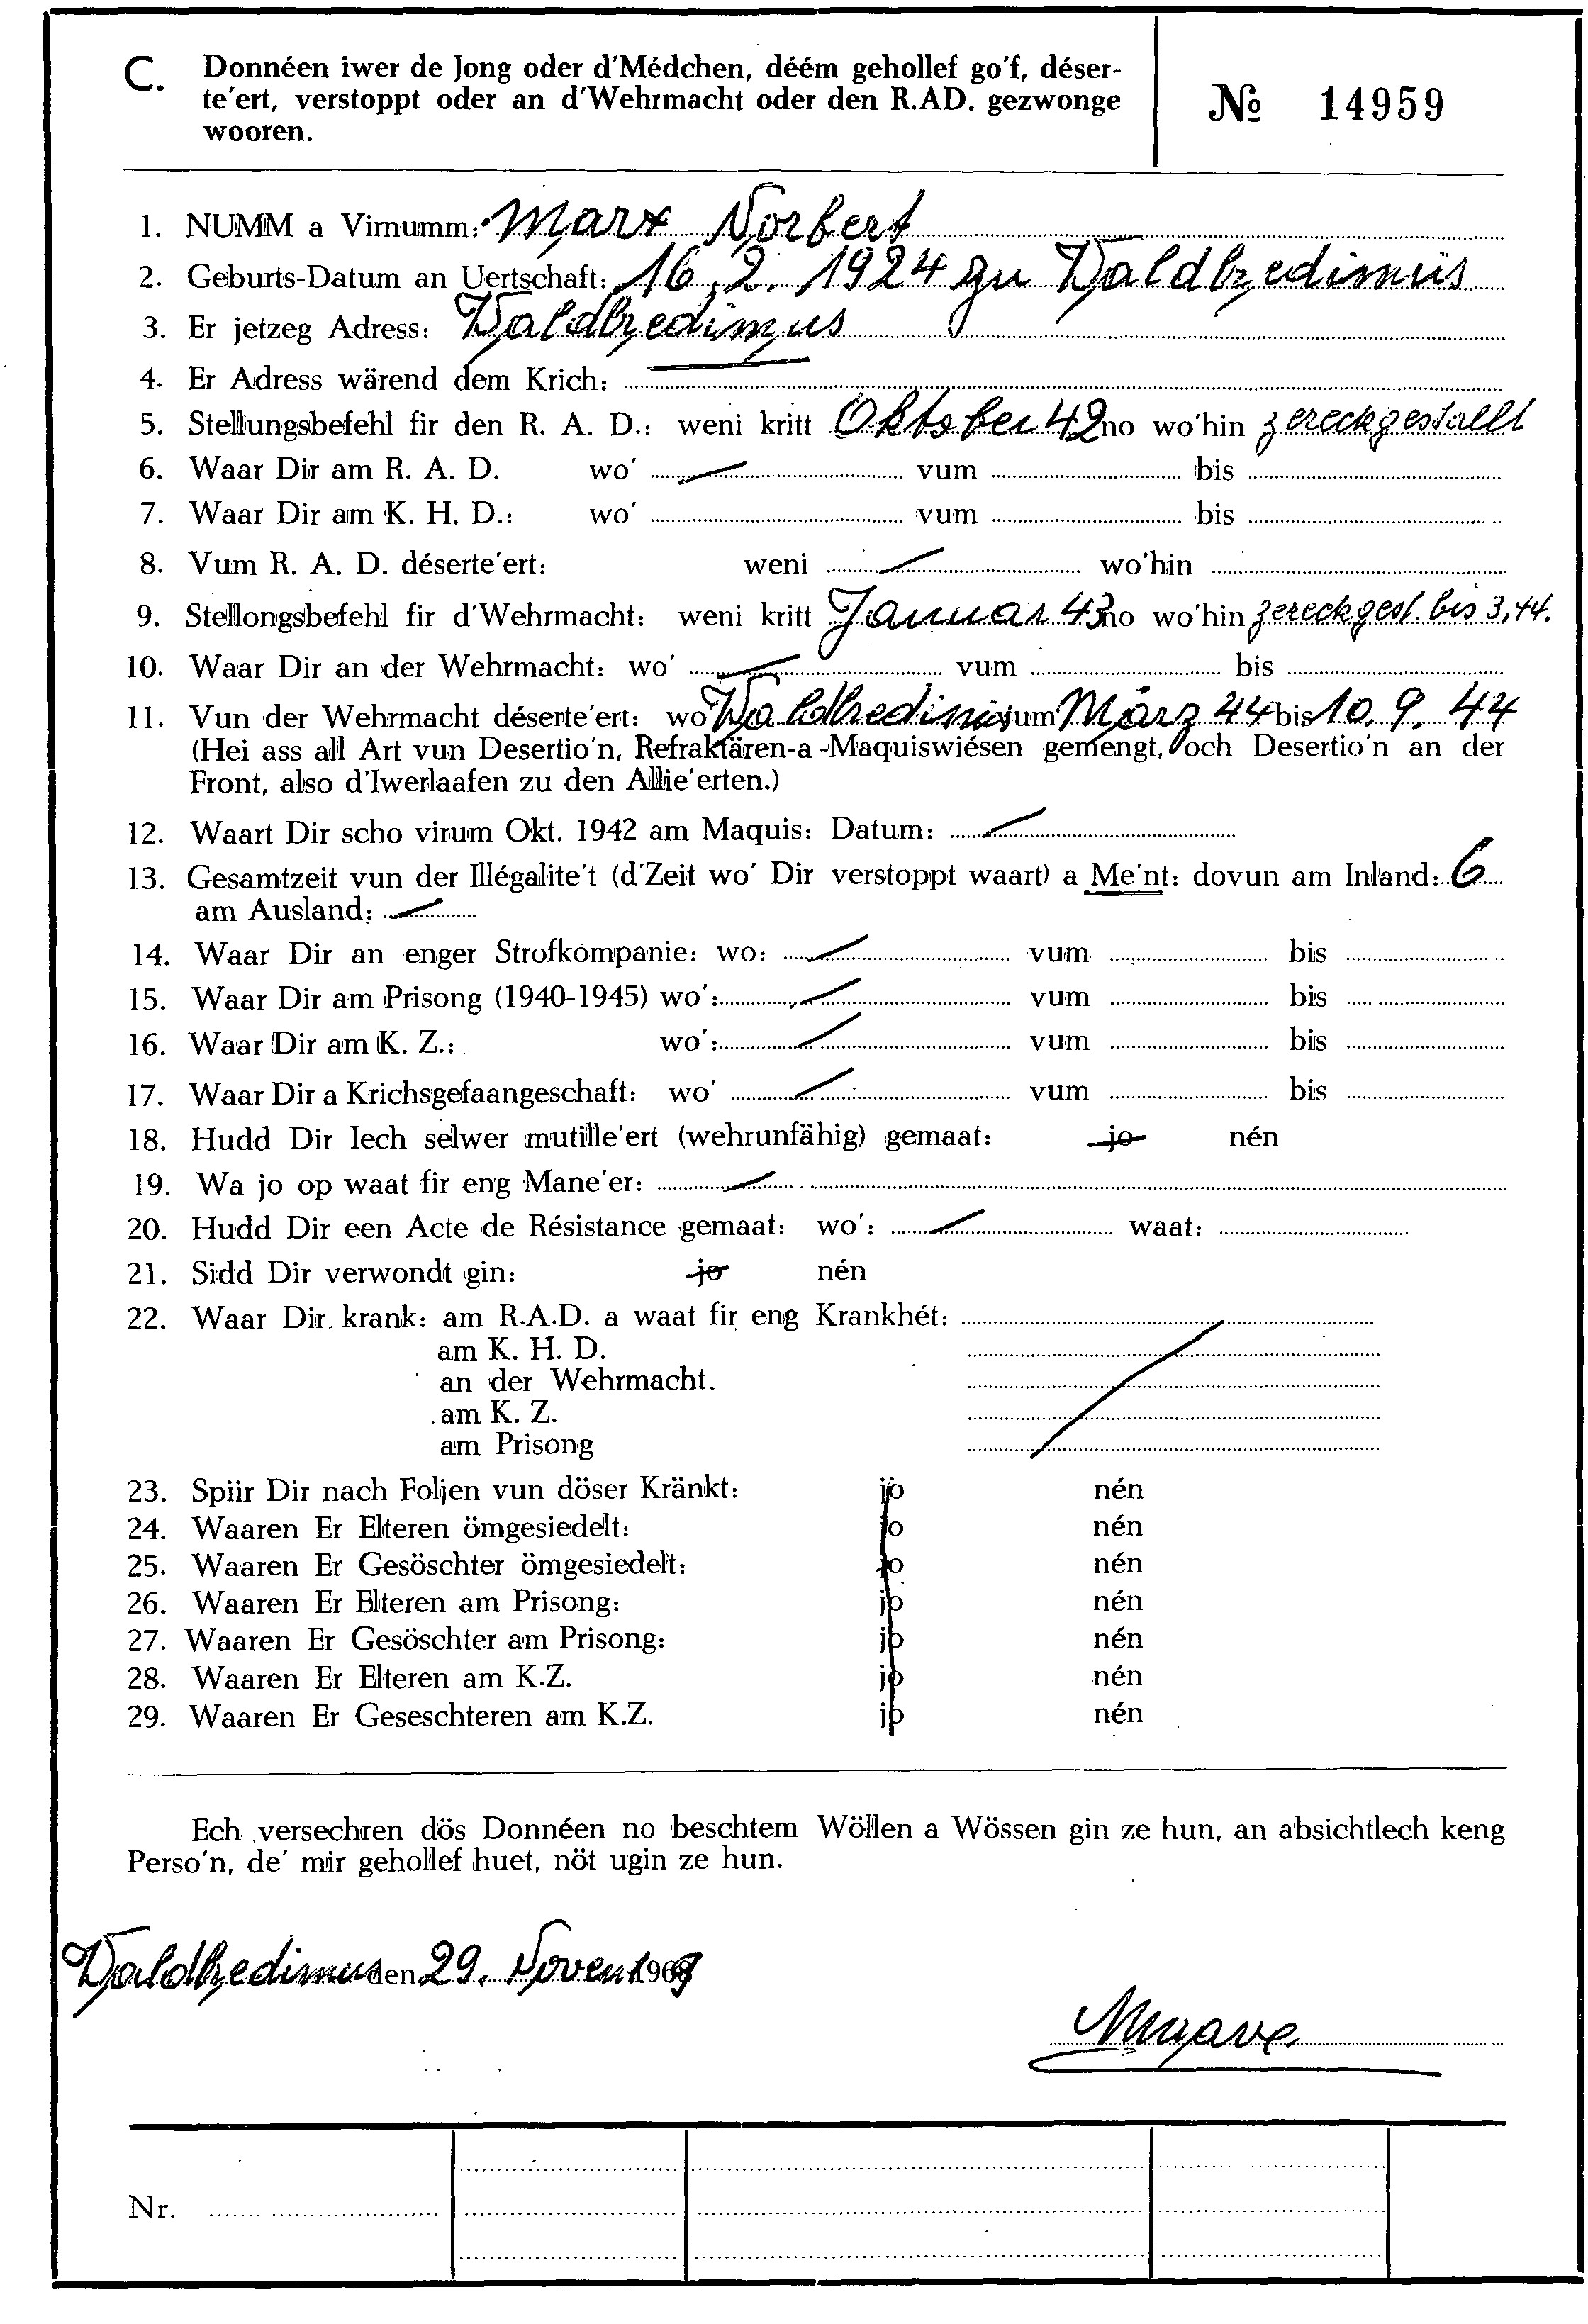 C. Donnéen iwer de Jong oder d'Médchen, déém gehollef go'f, déser-
te'ert, verstoppt oder an d'Wehrmacht oder den R.AD. gezwonge
wooren.
№ 14959
1. NUMM a Virnumm: Marx Norbert
2. Geburts-Datum an Uertschaft: 16.2.1924 zu Waldbredimus
3. Er jetzeg Adress: Waldbredimus
4. Er Adress wärend dem Krich:
5. Stellungsbefehl fir den R. A. D.: weni kritt Oktober 42 no wo'hin zereckgestallt
6. Waar Dir am R. A. D. wo' — vum bis
7. Waar Dir am K. H. D.: wo' vum bis
8. Vum R. A. D. déserte'ert: weni — wo'hin
9. Stellongsbefehl fir d'Wehrmacht: weni kritt Januar 43 no wo'hin zereckgest. bis 3.44.
10. Waar Dir an der Wehrmacht: wo' — vum bis
11. Vun der Wehrmacht déserte'ert: wo' Waldbredimus vum März 44 bis 10.9.44
(Hei ass all Art vun Desertio'n, Refraktären-a -Maquiswiésen gemengt, och Desertio'n an der
Front, also d'Iwerlaafen zu den Allie'erten.)
12. Waart Dir scho virum Okt. 1942 am Maquis: Datum: —
13. Gesamtzeit vun der Illégalite't (d'Zeit wo' Dir verstoppt waart) a Me'nt: dovun am Inland: 6
am Ausland: —
14. Waar Dir an enger Strofkompanie: wo: — vum bis
15. Waar Dir am Prisong (1940-1945) wo': — vum bis
16. Waar Dir am K. Z.: wo': — vum bis
17. Waar Dir a Krichsgefaangeschaft: wo' — vum bis
18. Hudd Dir Iech selwer mutille'ert (wehrunfähig) gemaat: jo nén
19. Wa jo op waat fir eng Mane'er: —
20. Hudd Dir een Acte de Résistance gemaat: wo': — waat:
21. Sidd Dir verwondt gin: jo nén
22. Waar Dir krank: am R.A.D. a waat fir eng Krankhét:
am K. H. D.
an der Wehrmacht.
am K. Z.
am Prisong
23. Spiir Dir nach Foljen vun döser Kränkt: jo nén
24. Waaren Er Elteren ömgesiedelt: jo nén
25. Waaren Er Gesöschter ömgesiedelt: jo nén
26. Waaren Er Elteren am Prisong: jo nén
27. Waaren Er Gesöschter am Prisong: jo nén
28. Waaren Er Elteren am K.Z. jo nén
29. Waaren Er Geseschteren am K.Z. jo nén
Ech versechren dös Donnéen no beschtem Wöllen a Wössen gin ze hun, an absichtlech keng
Perso'n, de' mir gehollef huet, nöt ugin ze hun.
Waldbredimus den 29. Novem 196
Nr.